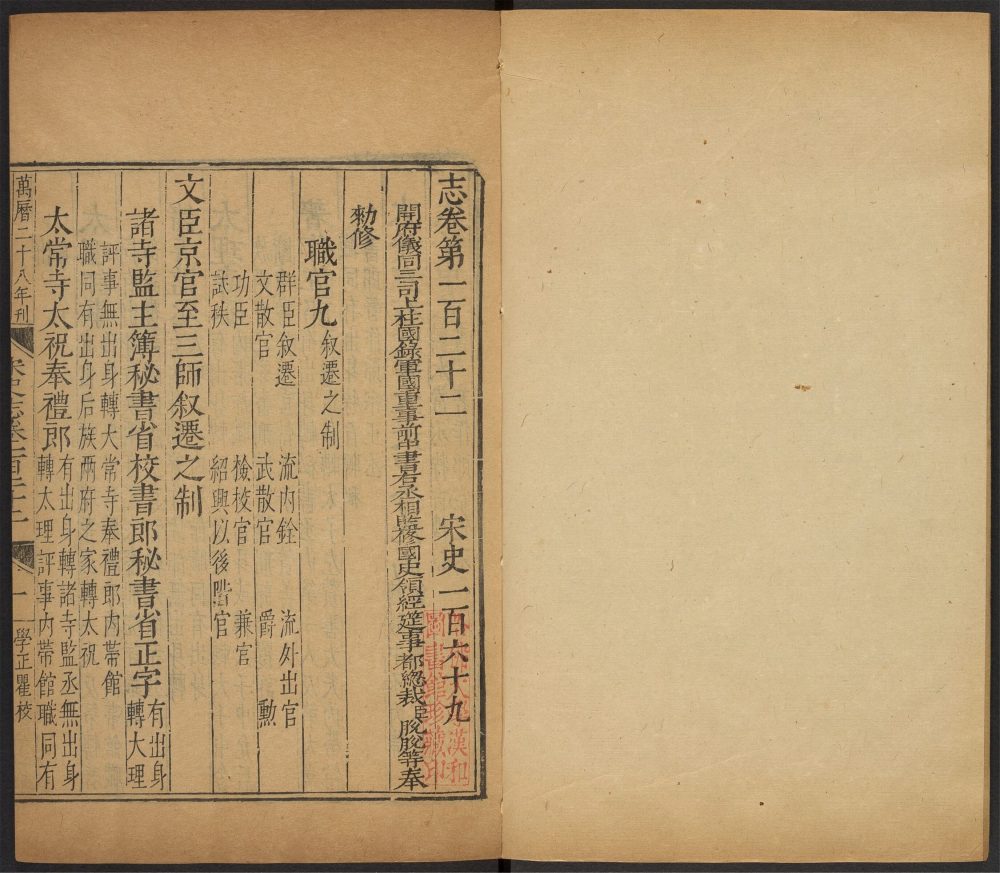 志卷第一百二十二 宋史一百六十九
開府儀同三司上柱國錄軍國重事前中書右丞相監修國史領經筵事都總裁臣脫脫等奉
勑修
職官九 叙遷之制
群臣叙遷 流内銓 流外出官
文散官 武散官 爵 勲
功臣 檢校官 兼官
試秩 紹興以後階官
文臣京官至三師叙遷之制
諸寺監主簿秘書省校書郎秘書省正字 有出身
轉大理
評事無出身轉太常寺奉禮郎内帯館
職同有出身后族兩府之家轉太祝
太常寺太祝奉禮郎 有出身轉諸寺監丞無出身
轉大理評事内帯館職同有
萬曆二十八年刊
宋史志卷一百二十二 一
學正瞿校